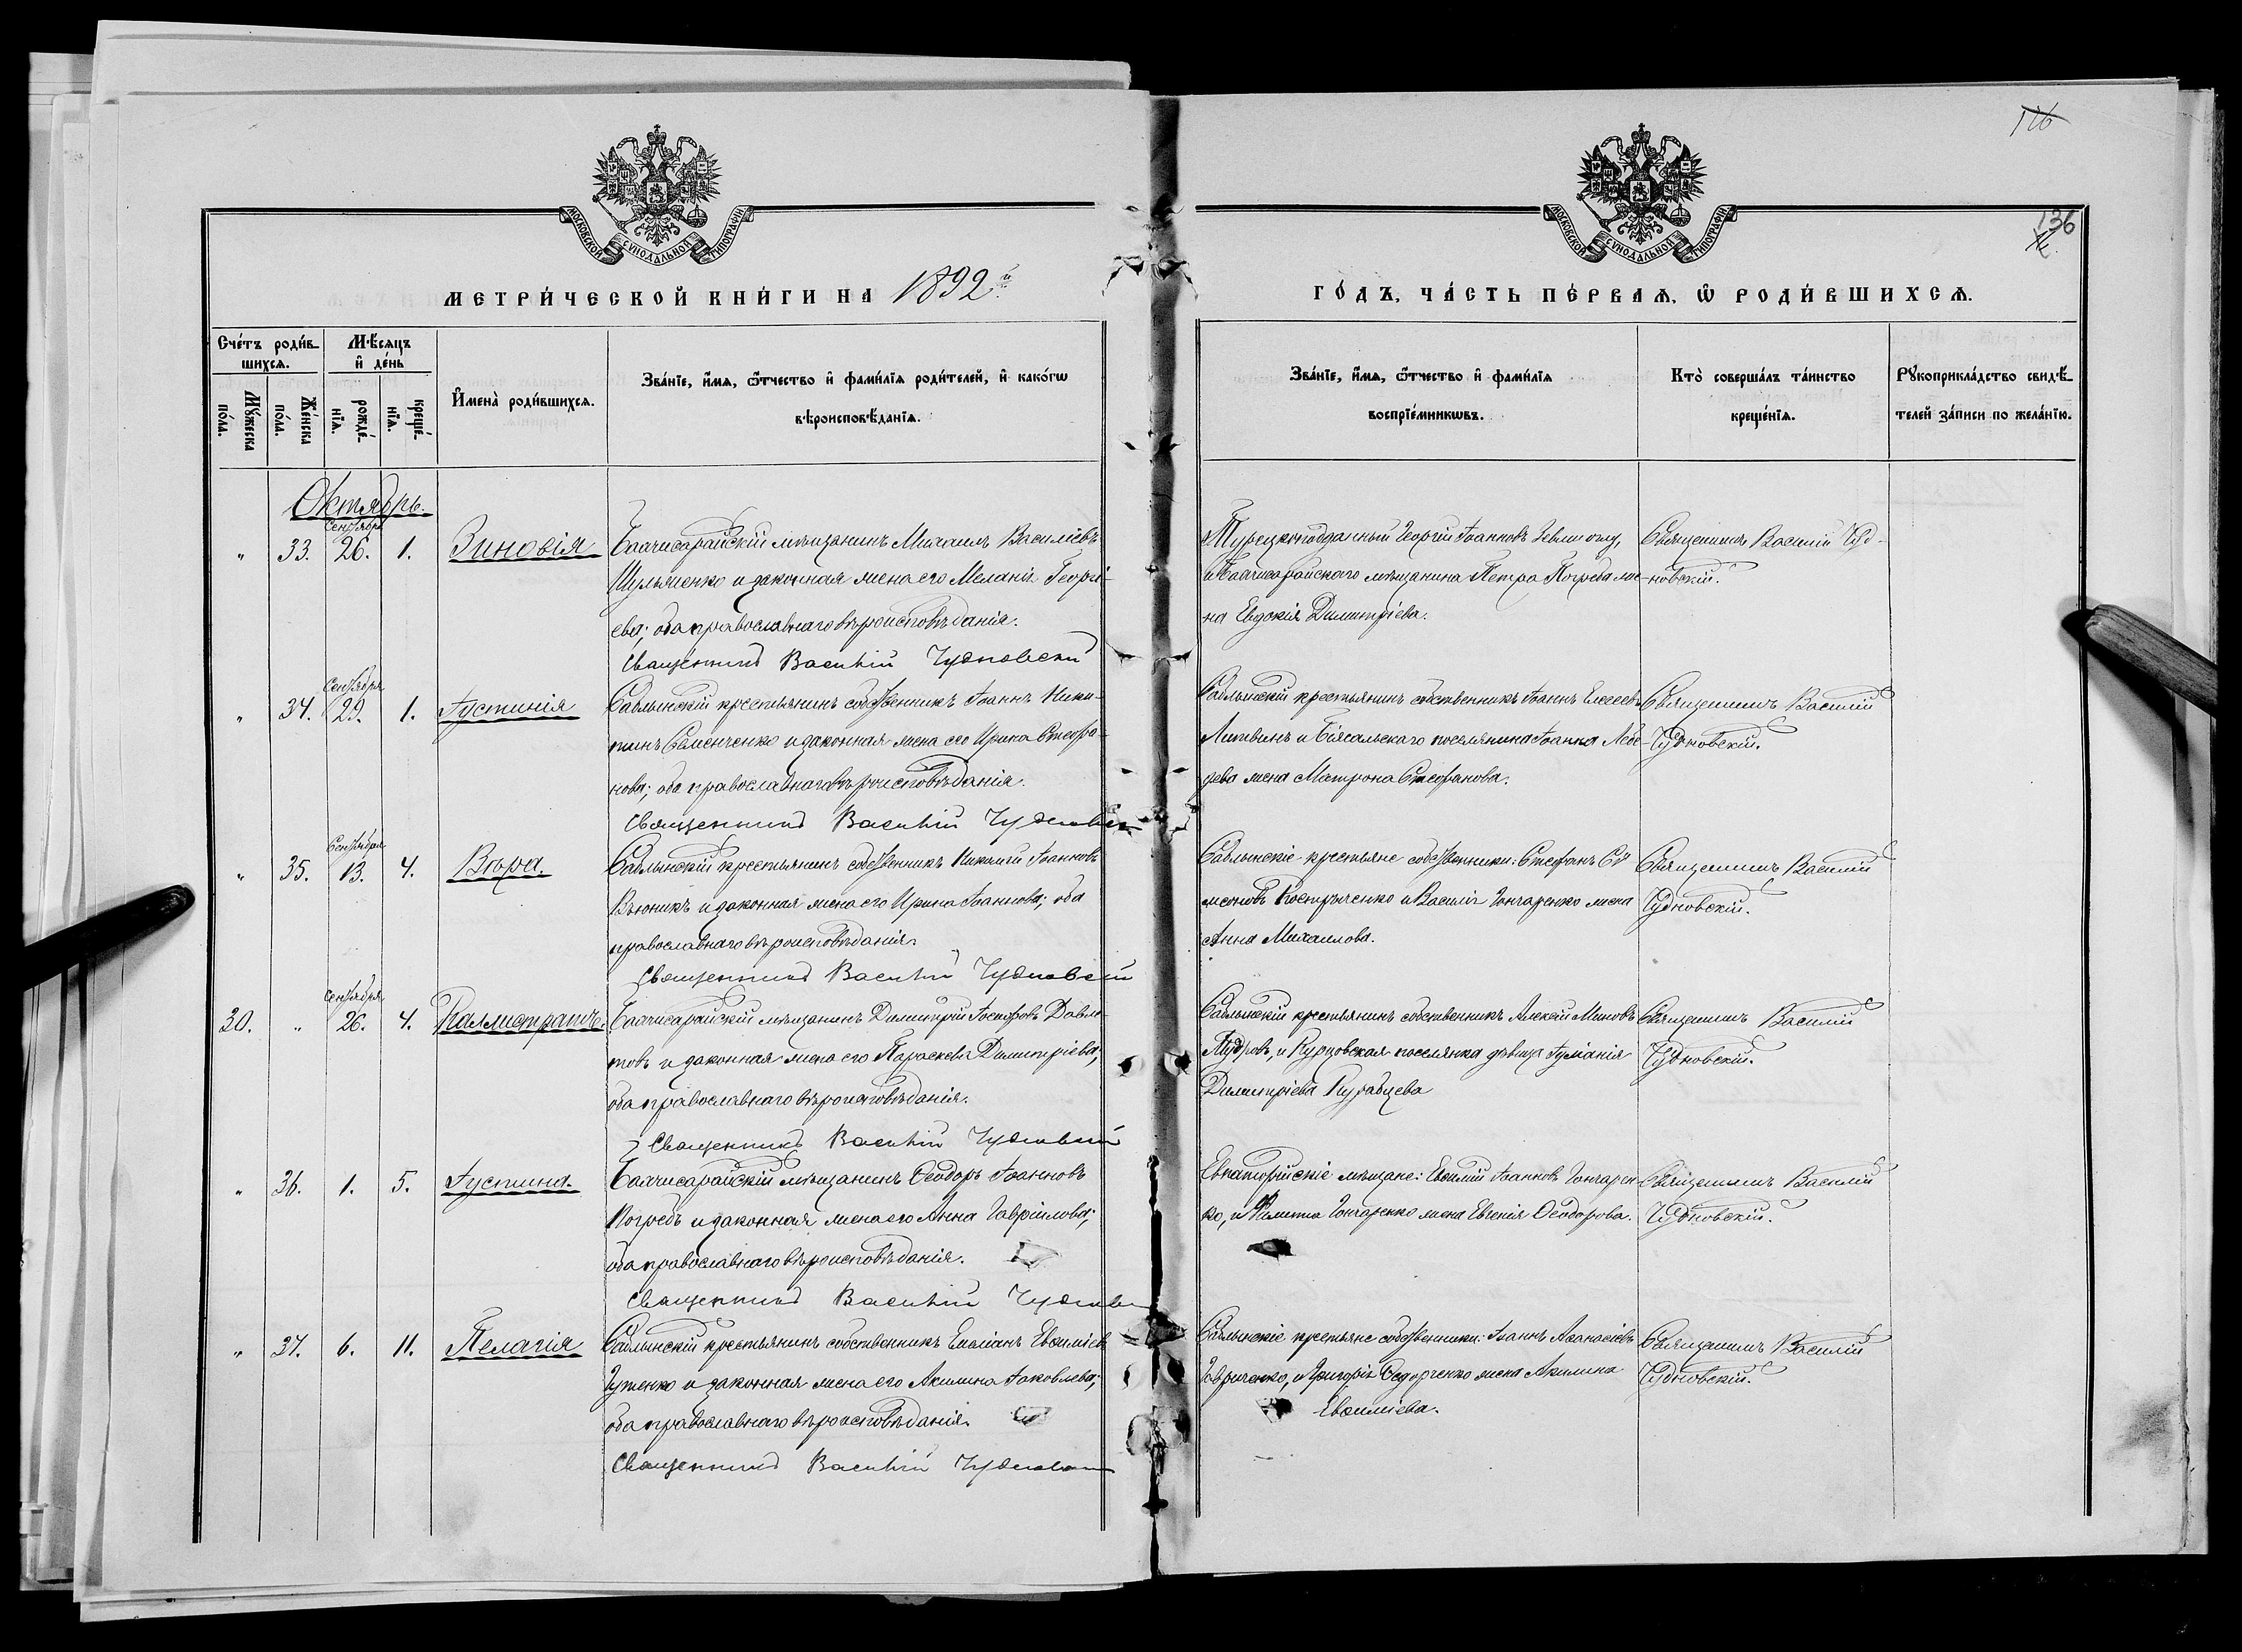 126
136
МОСКОВСКОЙ СУНОДАЛЬНОЙ ТИПОГРАФІИ
МОСКОВСКОЙ СУНОДАЛЬНОЙ ТИПОГРАФІИ
МЕТРИ́ЧЕСКОЙ КНИ́ГИ НА 1892й
ГО́ДЪ, ЧА́СТЬ ПЕ́РВАѦ, Ѡ҆ РОДИ́ВШИХСѦ.
Сче́тъ роди́вшихсѧ.
Мѣ́сѧцъ и҆ де́нь
Мꙋ́жеска по́ла.
Же́нска по́ла.
рожде́нїѧ.
креще́нїѧ.
И҆мена̀ роди́вшихсѧ.
Зва́нїе, и҆́мѧ, ѻ҆́тчество и҆ фами́лїѧ роди́телей, и҆ како́гѡ
вѣроисповѣ́данїѧ.
Зва́нїе, и҆́мѧ, ѻ҆́тчество и҆ фами́лїѧ
воспрїе́мникѡвъ.
Кто̀ соверша́лъ та́инство
креще́нїѧ.
Рꙋкоприкла́дство свидѣ́телей за́писи по жела́нїю.
Октябрь.
" 33. Сентября 26. 1. Зиновія
Бахчисарайскій мѣщанинъ Михаилъ Василіевъ
Шульженко и законная жена его Меланія Георгі-
ева; оба православнаго вѣроисповѣданія.
Священникъ Василій Чудновскій
Турецкоподданный Георгій Іоанновъ
и Бахчисарайскаго мѣщанина Петра Погреба же-
на Евдокія Димитріева.
Священникъ Василій Чуд-
новскій.
" 34. Сентября 29. 1. Іустинія
Саблынскій крестьянинъ собственникъ Іоаннъ Ники-
тинъ Семенченко и законная жена его Ирина Стефа-
нова; оба православнаго вѣроисповѣданія.
Священникъ Василій Чудновскій
Саблынскій крестьянинъ собственникъ Іоаннъ Елесеевъ
Литвинъ и Біясальскаго поселянина Іоанна Лебе-
дева жена Матрона Стефанова.
Священникъ Василій
Чудновскій.
" 35. Сентября 13. 4. Вѣра.
Саблынскій крестьянинъ собственникъ Николай Іоанновъ
Вьюникъ и законная жена его Ирина Іоаннова; оба
православнаго вѣроисповѣданія.
Священникъ Василій Чудновскій
Саблынскіе крестьяне собственники: Стефанъ Си-
меоновъ Костыченко и Василія Гончаренко жена
Анна Михаилова.
Священникъ Василій
Чудновскій.
30. " Сентября 26. 4. Каллистратъ.
Бахчисарайскій мѣщанинъ Димитрій Іосифовъ Давле-
товъ и законная жена его Параскева Димитріева;
оба православнаго вѣроисповѣданія.
Священникъ Василій Чудновскій
Саблынскій крестьянинъ собственникъ Алексій Миновъ
Пудровъ, и Курцовская поселянка дѣвица Іуліанія
Димитріева
Священникъ Василій
Чудновскій.
" 36. 1. 5. Іустина.
Бахчисарайскій мѣщанинъ Ѳеодоръ Іоанновъ
Погребъ и законная жена его Анна Гавріилова;
оба православнаго вѣроисповѣданія.
Священникъ Василій
Евпаторійскіе мѣщане: Евѳимій Іоанновъ Гончарен-
ко, и Филиппа Гончаренко жена Евгенія Ѳеодорова.
Священникъ Василій
Чудновскій.
" 37. 6. 11. Пелагія
Саблынскій крестьянинъ собственникъ Емеліанъ Евѳиміевъ
и законная жена его Акилина Іаковлева;
оба православнаго вѣроисповѣданія.
Священникъ Василій Чудновскій
Саблынскіе крестьяне собственники: Іоаннъ Аѳанасіевъ
Гавриченко, и Григорія Ѳедорченко жена Акилина
Евѳиміева.
Священникъ Василій
Чудновскій.